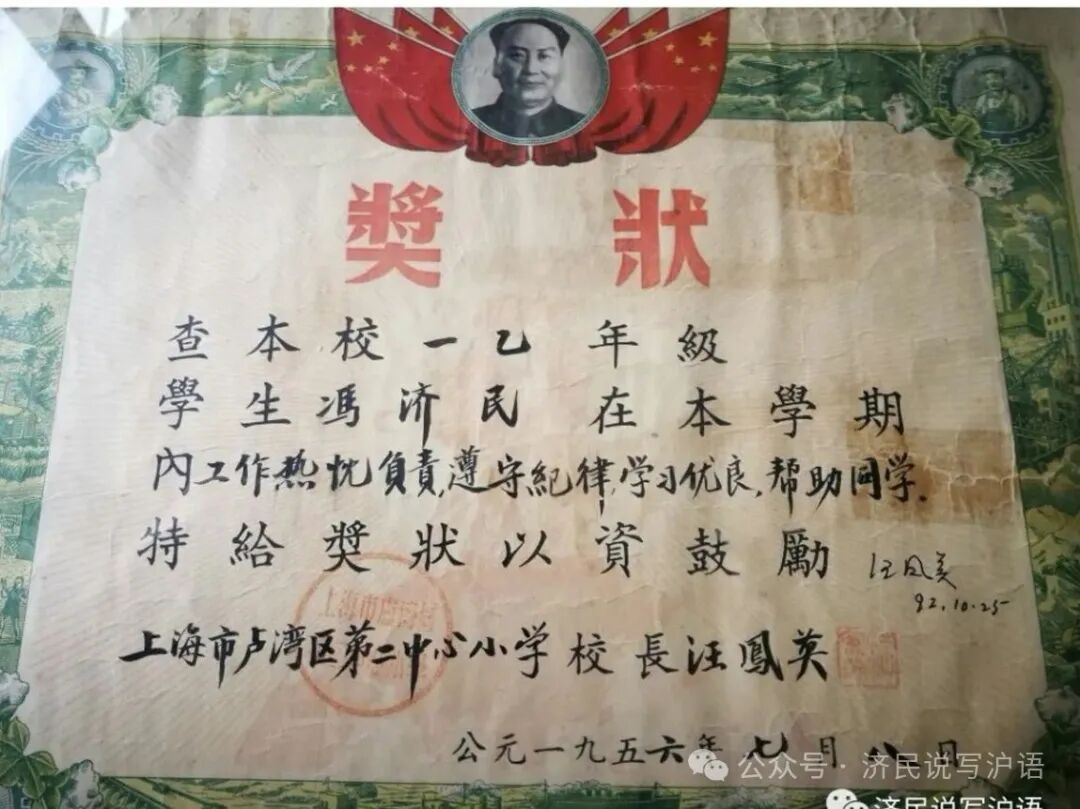 獎狀
查本校一乙年級
學生馮济民在本學期
內工作热忱負責,遵守紀律,学习优良,帮助同学.
特給獎狀以資鼓勵
汪凤英
92.10.25
上海市卢湾区第二中心小学校長汪鳳英
公元一九五六年七月八日
公众号·济民说写沪语
济民说写沪语